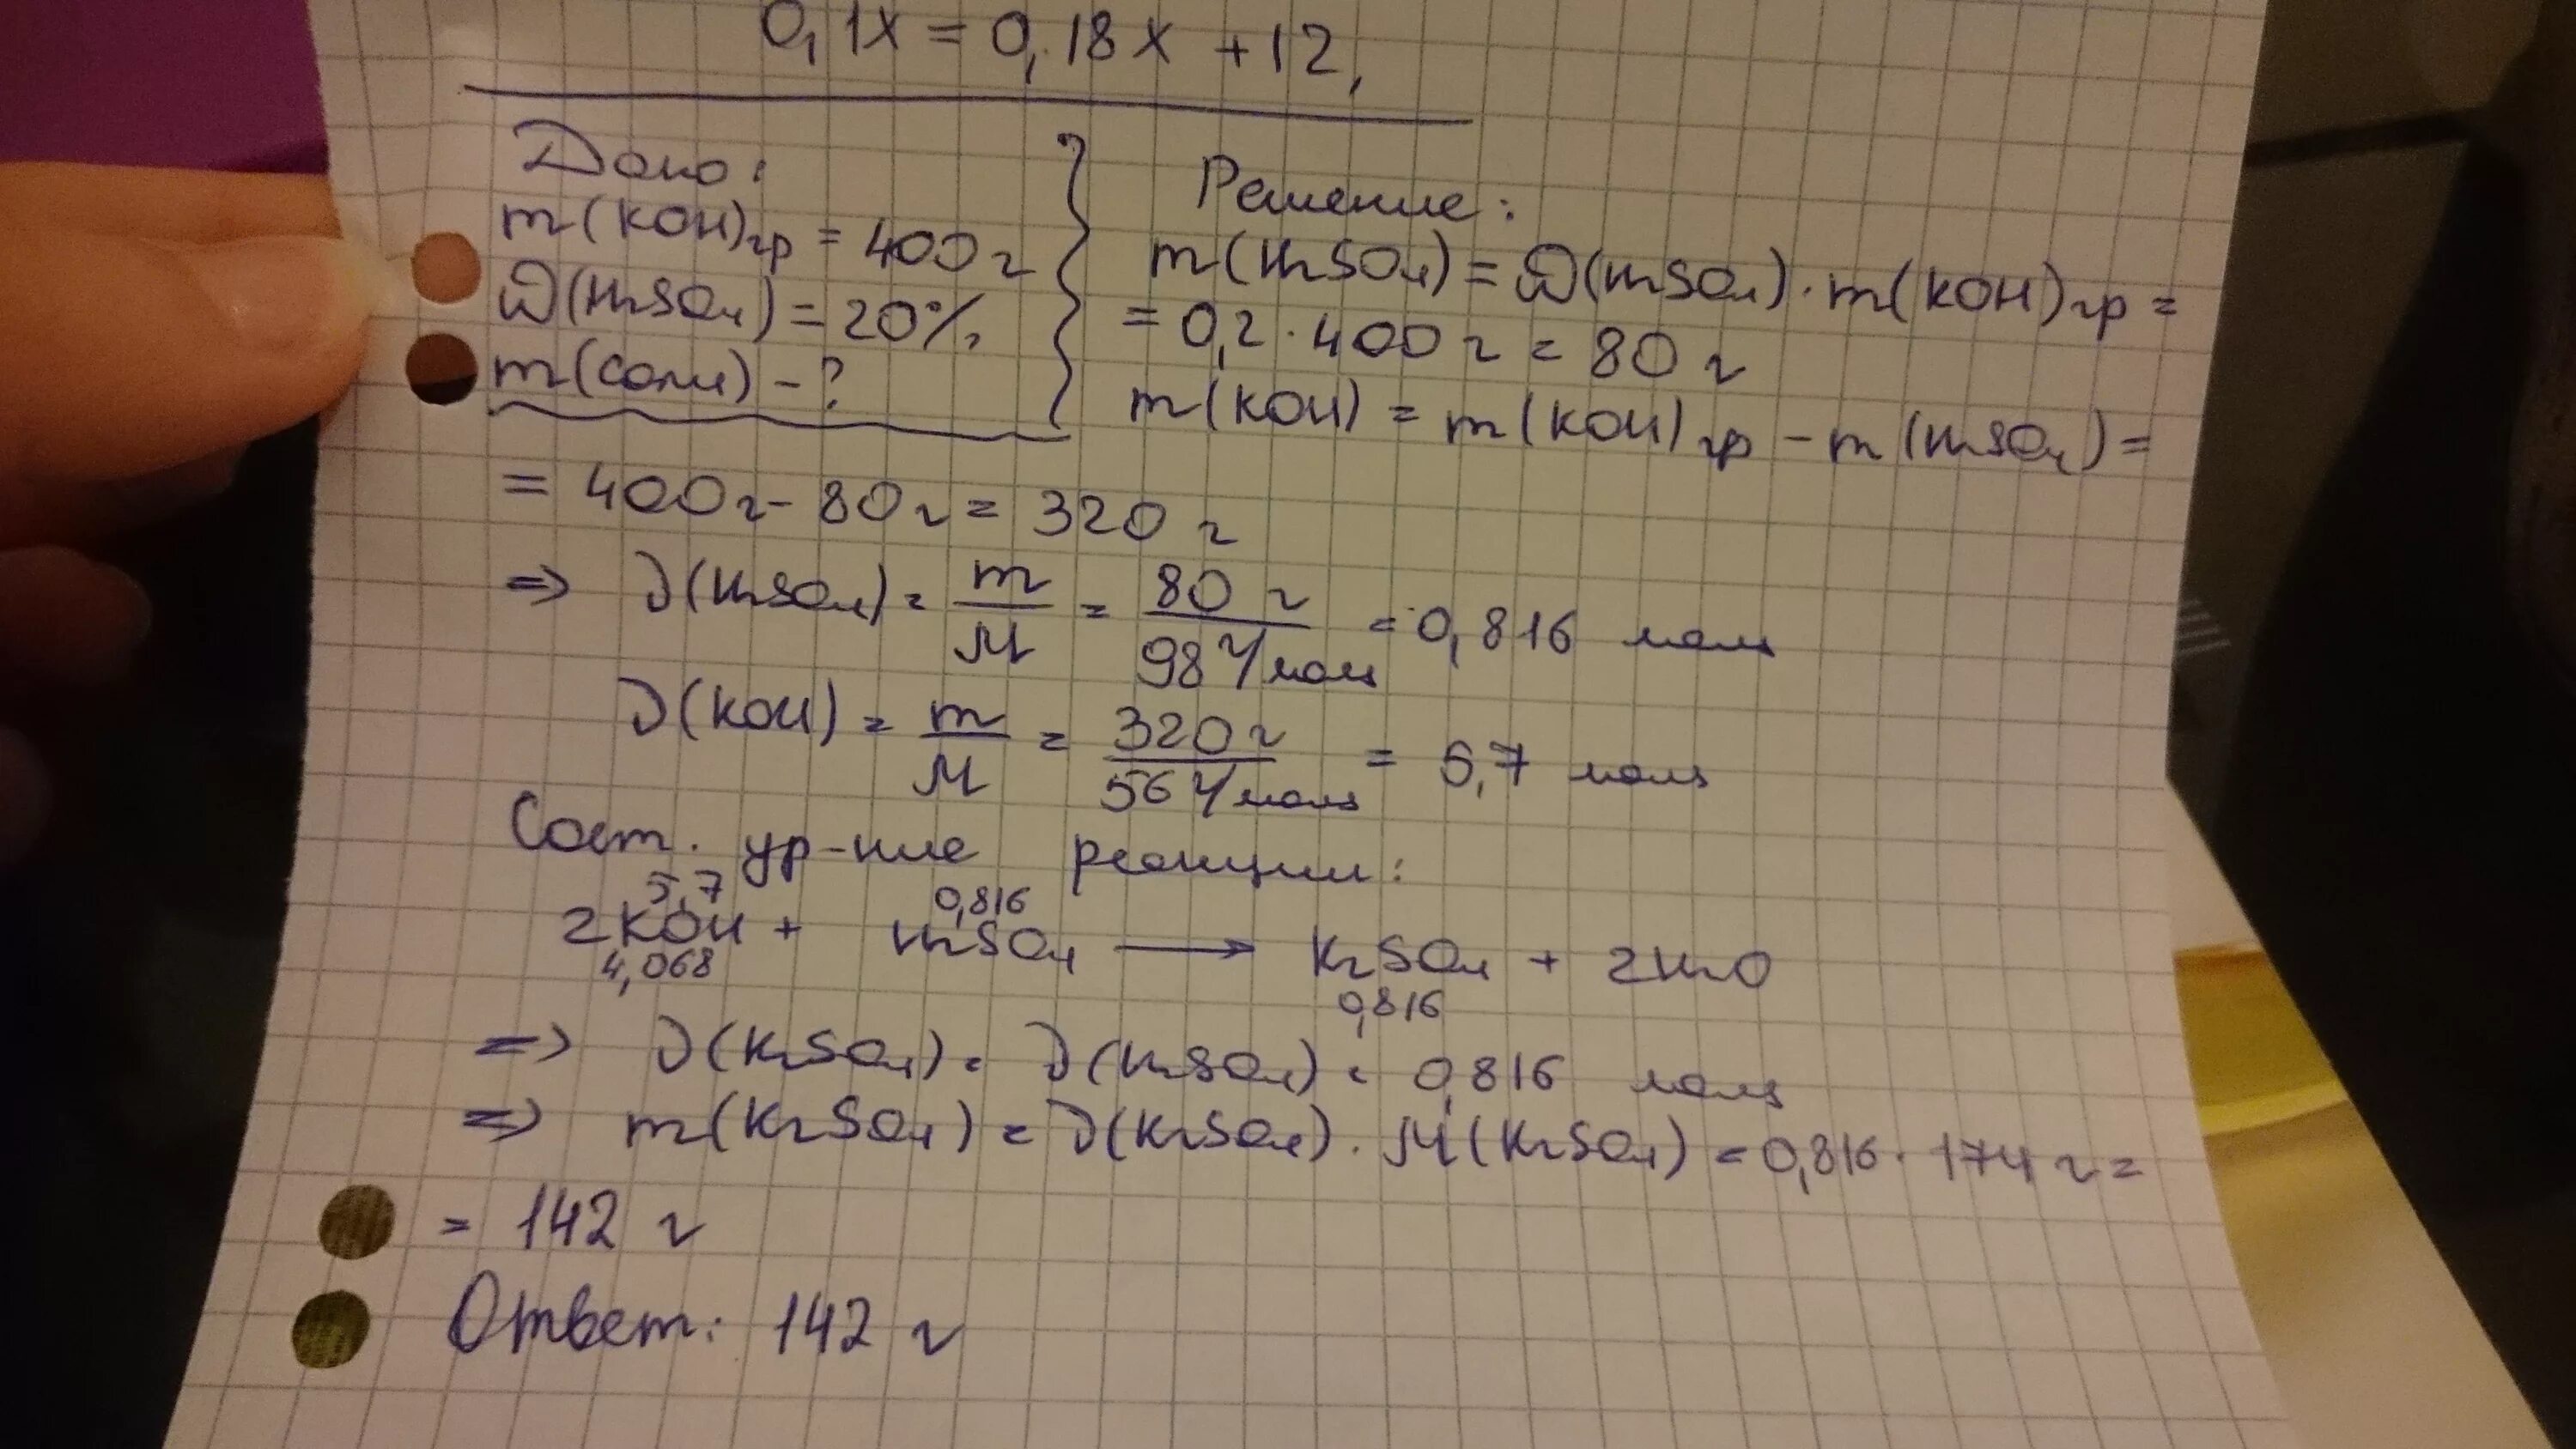 0,1x = 0,18x + 12,
Дано:
m(KOH)гр = 400 г
ω(H₂SO₄) = 20%
m(соли) - ?
Решение:
m(H₂SO₄) = ω(H₂SO₄) · m(KOH)гр =
= 0,2 · 400 г = 80 г
m(KOH) = m(KOH)гр - m(H₂SO₄) =
= 400 г - 80 г = 320 г
=> ν(H₂SO₄) = m/M = 80 г/98 г/моль = 0,816 моль
ν(KOH) = m/M = 320 г/56 г/моль = 5,7 моль
Сост. ур-ние реакции:
5,7 0,816
2KOH + H₂SO₄ → K₂SO₄ + 2H₂O
4,068 0,816
=> ν(K₂SO₄) = ν(H₂SO₄) = 0,816 моль
=> m(K₂SO₄) = ν(K₂SO₄) · M(K₂SO₄) = 0,816 · 174 г =
= 142 г
Ответ: 142 г